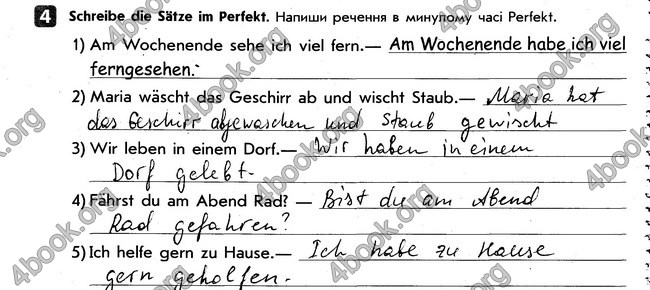 4 Schreibe die Sätze im Perfekt. Напиши речення в минулому часі Perfekt.
1) Am Wochenende sehe ich viel fern.— Am Wochenende habe ich viel
ferngesehen.
2) Maria wäscht das Geschirr ab und wischt Staub.— Maria hat
das Geschirr abgewaschen und Staub gewischt
3) Wir leben in einem Dorf.— Wir haben in einem
Dorf gelebt.
4) Fährst du am Abend Rad? — Bist du am Abend
Rad gefahren?
5) Ich helfe gern zu Hause.— Ich habe zu Hause
gern geholfen.
4book.org
4book.org
4book.org
4book.org
4book.org
4book.org